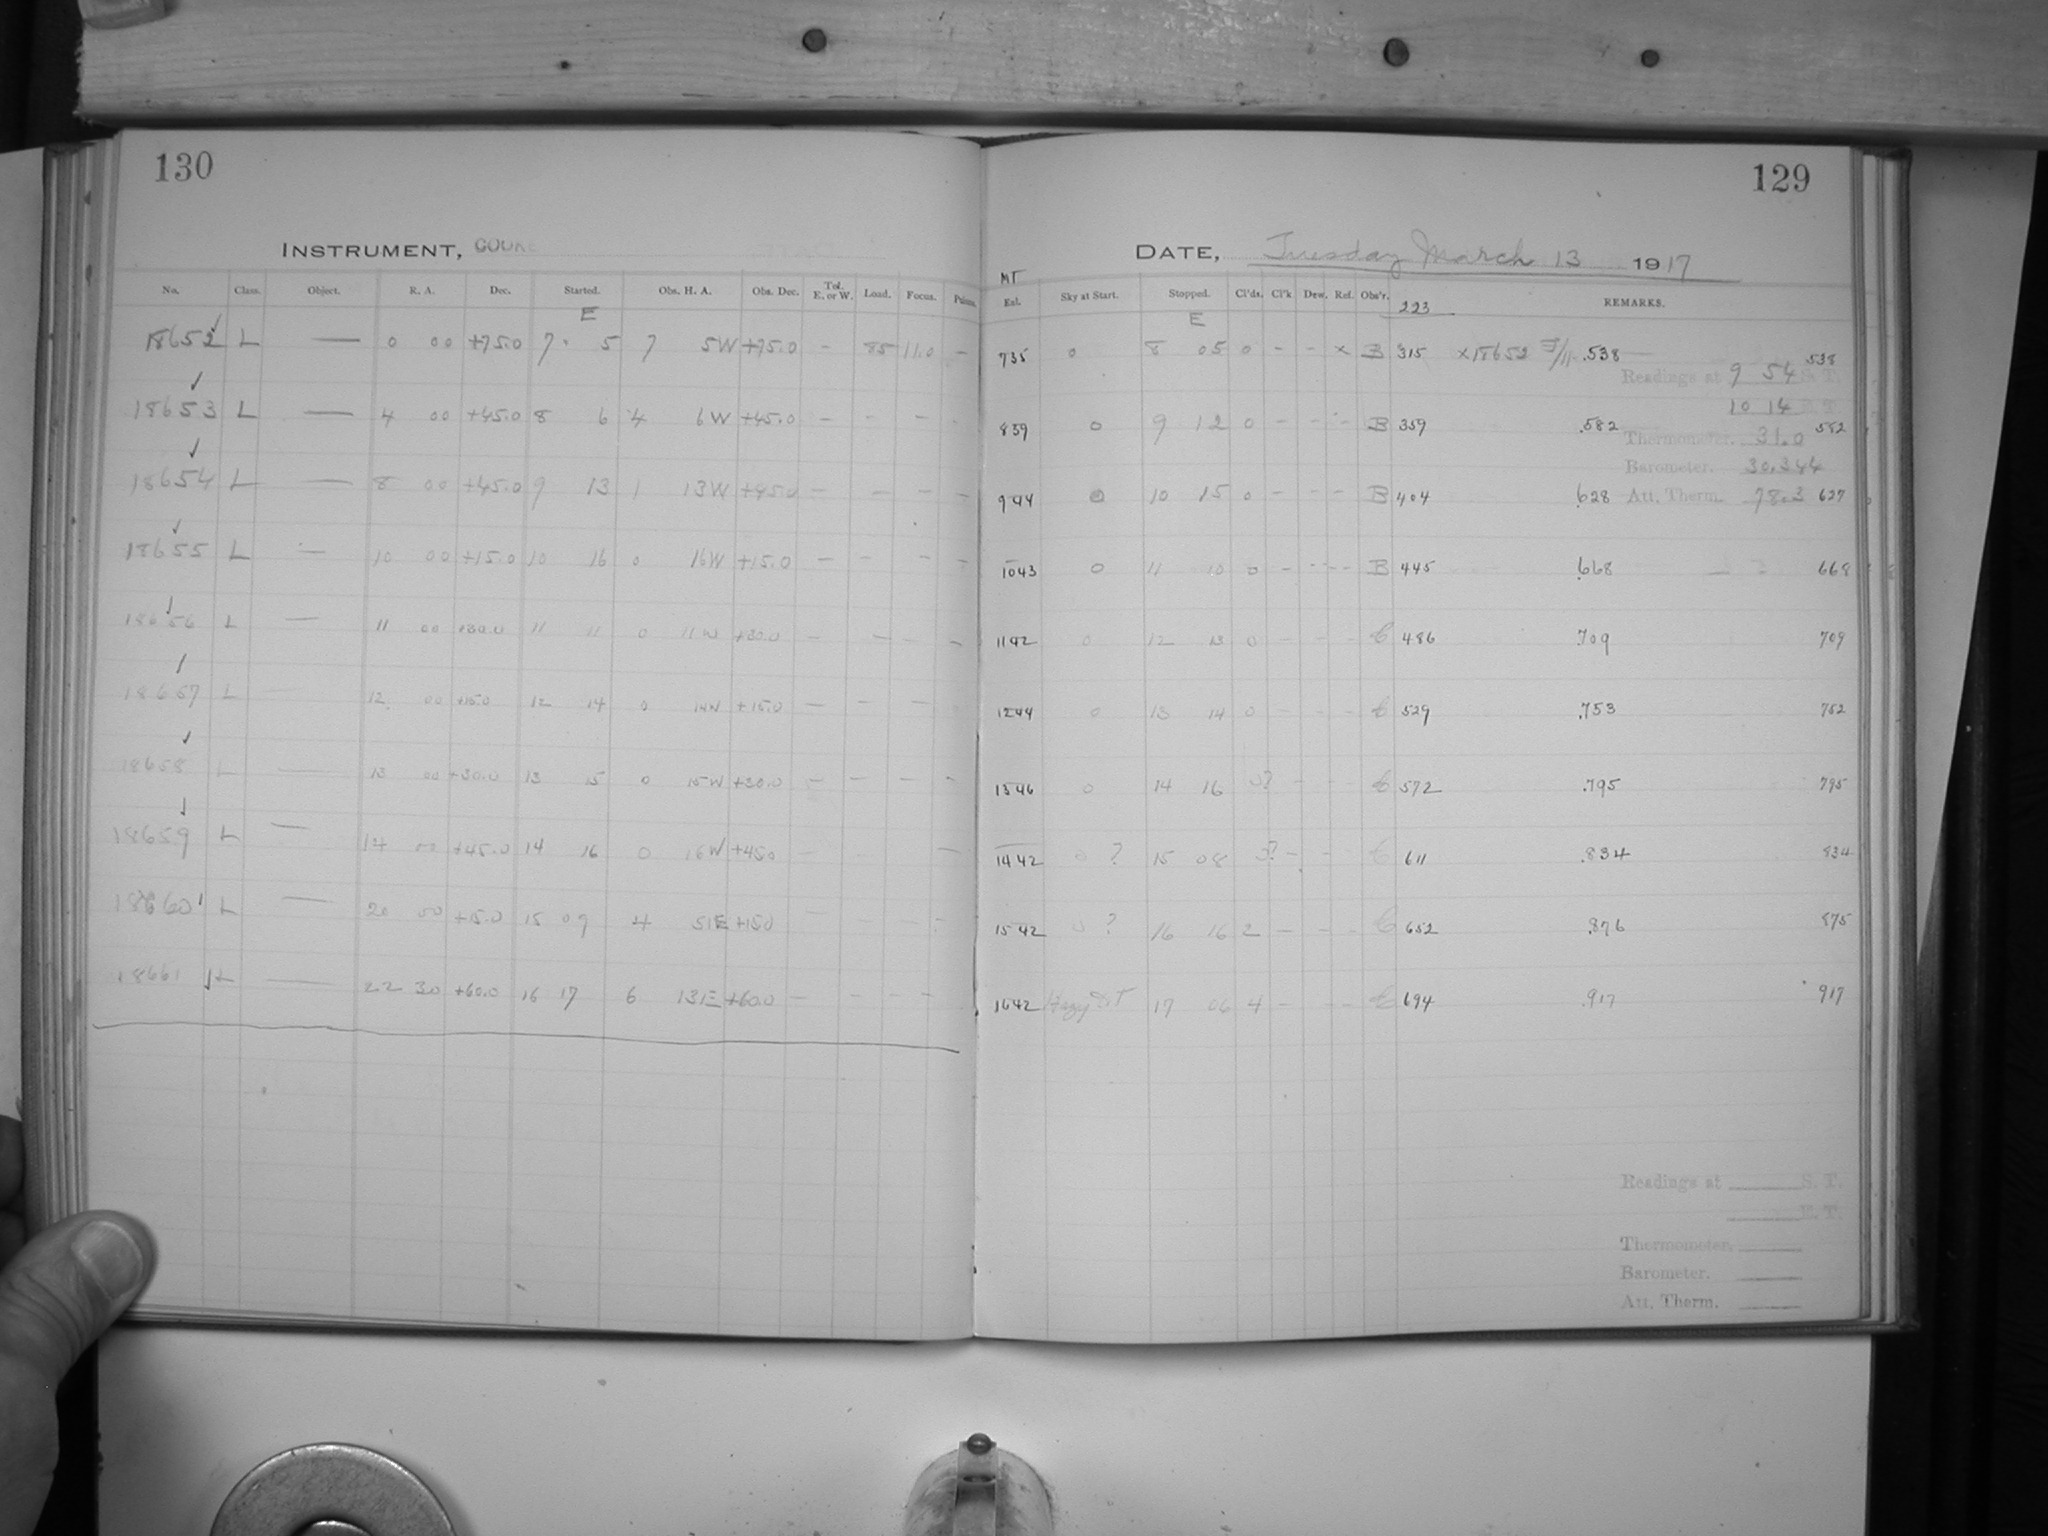 130
INSTRUMENT, COOKE
No. Class. Object. R. A. Dec. Started. Obs. H. A. Obs. Dec. Tel. E. or W. Load. Focus.
E
18652 L — 0 00 +75.0 7 5 7 5W +75.0 - 85 11.0 -
18653 L — 4 00 +45.0 8 6 4 6W +45.0 - - - -
18654 L — 8 00 +45.0 9 13 1 13W +45.0 - - - -
18655 L — 10 00 +15.0 10 16 0 16W +15.0 - - - -
18656 L — 11 00 +30.0 11 11 0 11W +30.0 - - - -
18657 L — 12 00 +15.0 12 14 0 14W +15.0 - - -
18658 L — 13 00 +30.0 13 15 0 15W +30.0 - - - -
18659 L — 14 00 +45.0 14 16 0 16W +45.0
18660 L — 20 00 +15.0 15 09 4 51E +15.0
18661 L — 22 30 +60.0 16 17 6 13E +60.0 - - - -
129
DATE, Tuesday March 13 1917
MT
Exl. Sky at Start. Stopped. Cl'ds. Cl'k Dew. Ref. Obs'r. 223 REMARKS.
E
735 0 8 05 0 - - x B 315 x18652 .538 538
Readings at 9 54 S. T.
10 14 E. T.
839 0 9 12 0 - - - B 359 .582 582
Thermometer. 31.0
Barometer. 30.344
944 0 10 15 0 - - - B 404 .628 Att. Therm. 78.3 627
1043 0 11 10 0 - - - B 445 .668 668
1142 0 12 13 0 - - - C 486 .709 709
1244 0 13 14 0 - - - C 529 .753 752
1346 0 14 16 0? - - - C 572 .795 795
1442 0 ? 15 08 - - - C 611 .834 834
1542 0 ? 16 16 2 - - - C 652 .876 875
1642 Hazy 17 06 4 - - - C 694 .917 917
Readings at S. T.
E. T.
Thermometer.
Barometer.
Att. Therm.